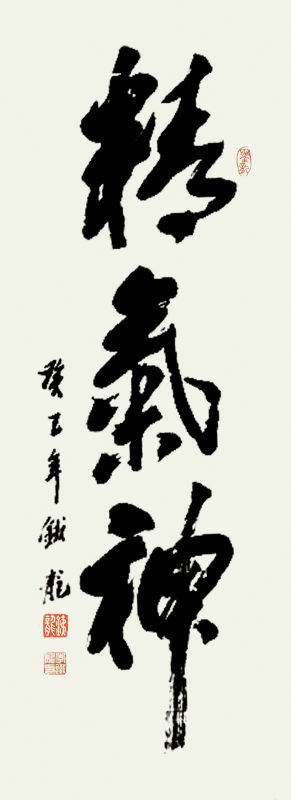 精氣神
癸巳年鐵龍